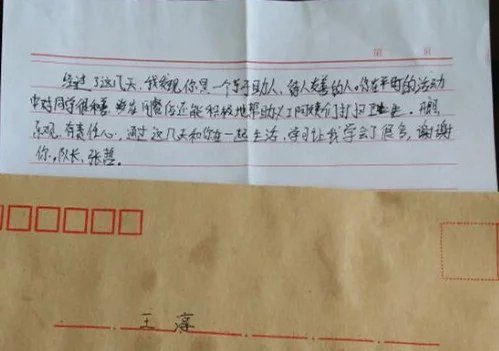 第 页
经过了这几天,我发现,你是一个乐于助人,待人友善的人。你在平时的活动
中对同学很和善 在用餐后还能积极地帮助义工阿姨们打扫卫生。
乐观,有责任心,通过这几天和你在一起生活,学习让我学会了很多,谢谢
你。队长,张
王